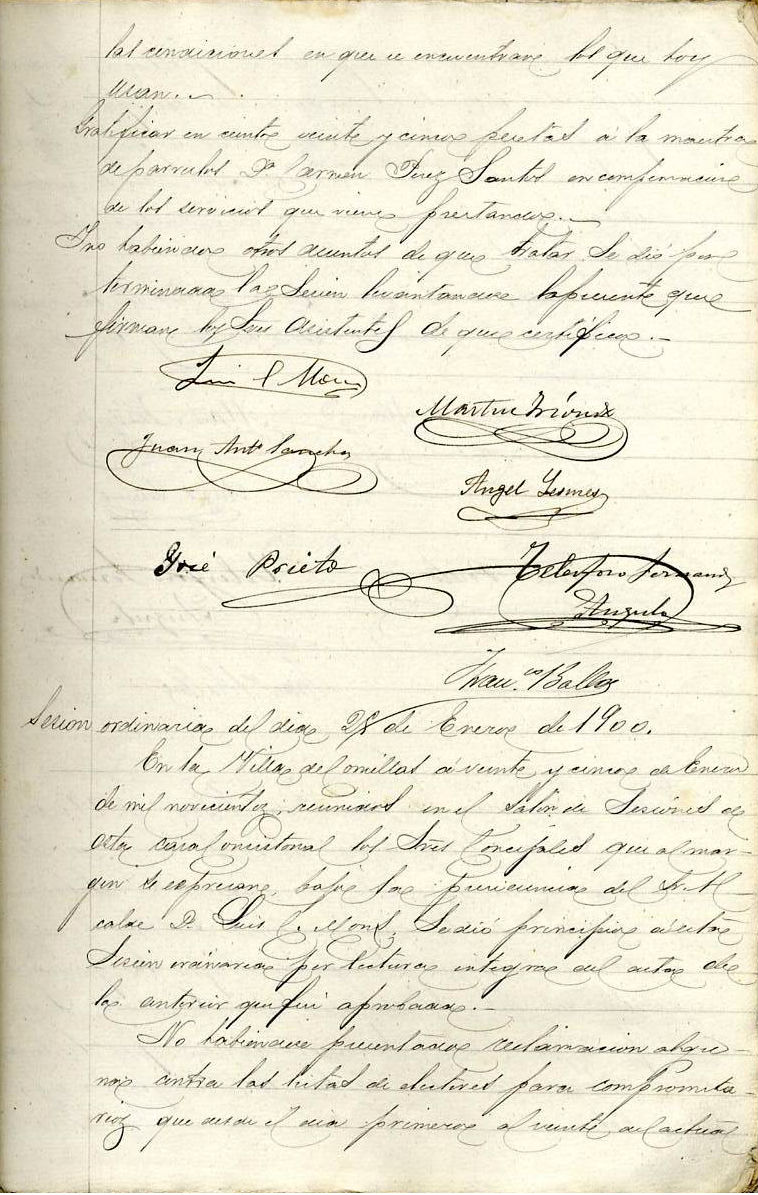 las condiciones en que se encuentran los que hoy
usan.
Gratificar en ciento veinte y cinco pesetas á la maestra
de parvulos Dª Carmen Perez Santos en compensacion
de los servicios que viene prestando.
Y no habiendo otros asuntos de que tratar se dió por
terminada la Sesion levantandose la presente que
firman los Sres Asistentes de que certifico.
Luis C Mons
Martin
Juan Antº Sancho
Angel Lesmes
José Prieto
Telesforo Fernandez
Angulo
Franco Balla
Sesion ordinaria del dia 25 de Enero de 1900.
En la Villa de á veinte y cinco de Enero
de mil novecientos, reunidos en el Salon de Sesiones de
esta casa Consistorial los Sres Concejales que al mar-
gen se expresan, bajo la presidencia del Sr. Al-
calde D. Luis C. Mons, se dió principio á esta
Sesion ordinaria por lectura integra del acta de
la anterior que fué aprobada.
No habiendose presentado reclamacion algu-
na contra las listas de electores para compromisa-
rios que desde el dia primero al veinte del actual